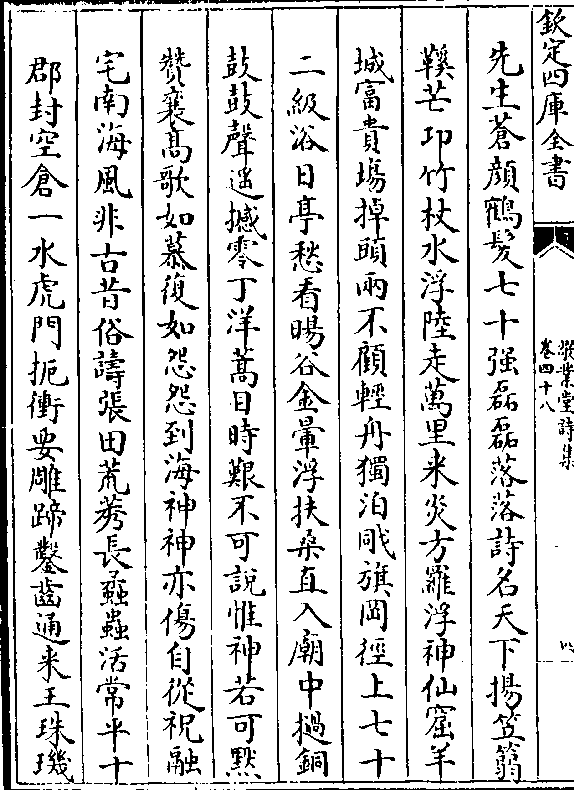 欽定四庫全書
敬業堂詩集
卷四十八
先生蒼顔鶴髮七十强磊磊落落詩名天下揚笠蒻
鞵芒卭竹杖水浮陸走萬里来炎方羅浮神仙窟羊
城富貴塲掉頭兩不顧輕舟獨泊戙旗岡徑上七十
二級浴日亭愁看暘谷金暈浮扶桑直入廟中撾銅
鼓鼓聲遥撼零丁洋蒿目時艱不可說惟神若可黙
賛襄髙歌如慕復如怨怨到海神神亦傷自從祝融
宅南海風非古昔俗譸張田荒莠長蟊蟲活常平十
郡封空倉一水虎門扼衝要雕蹄鑿齒通来王珠璣